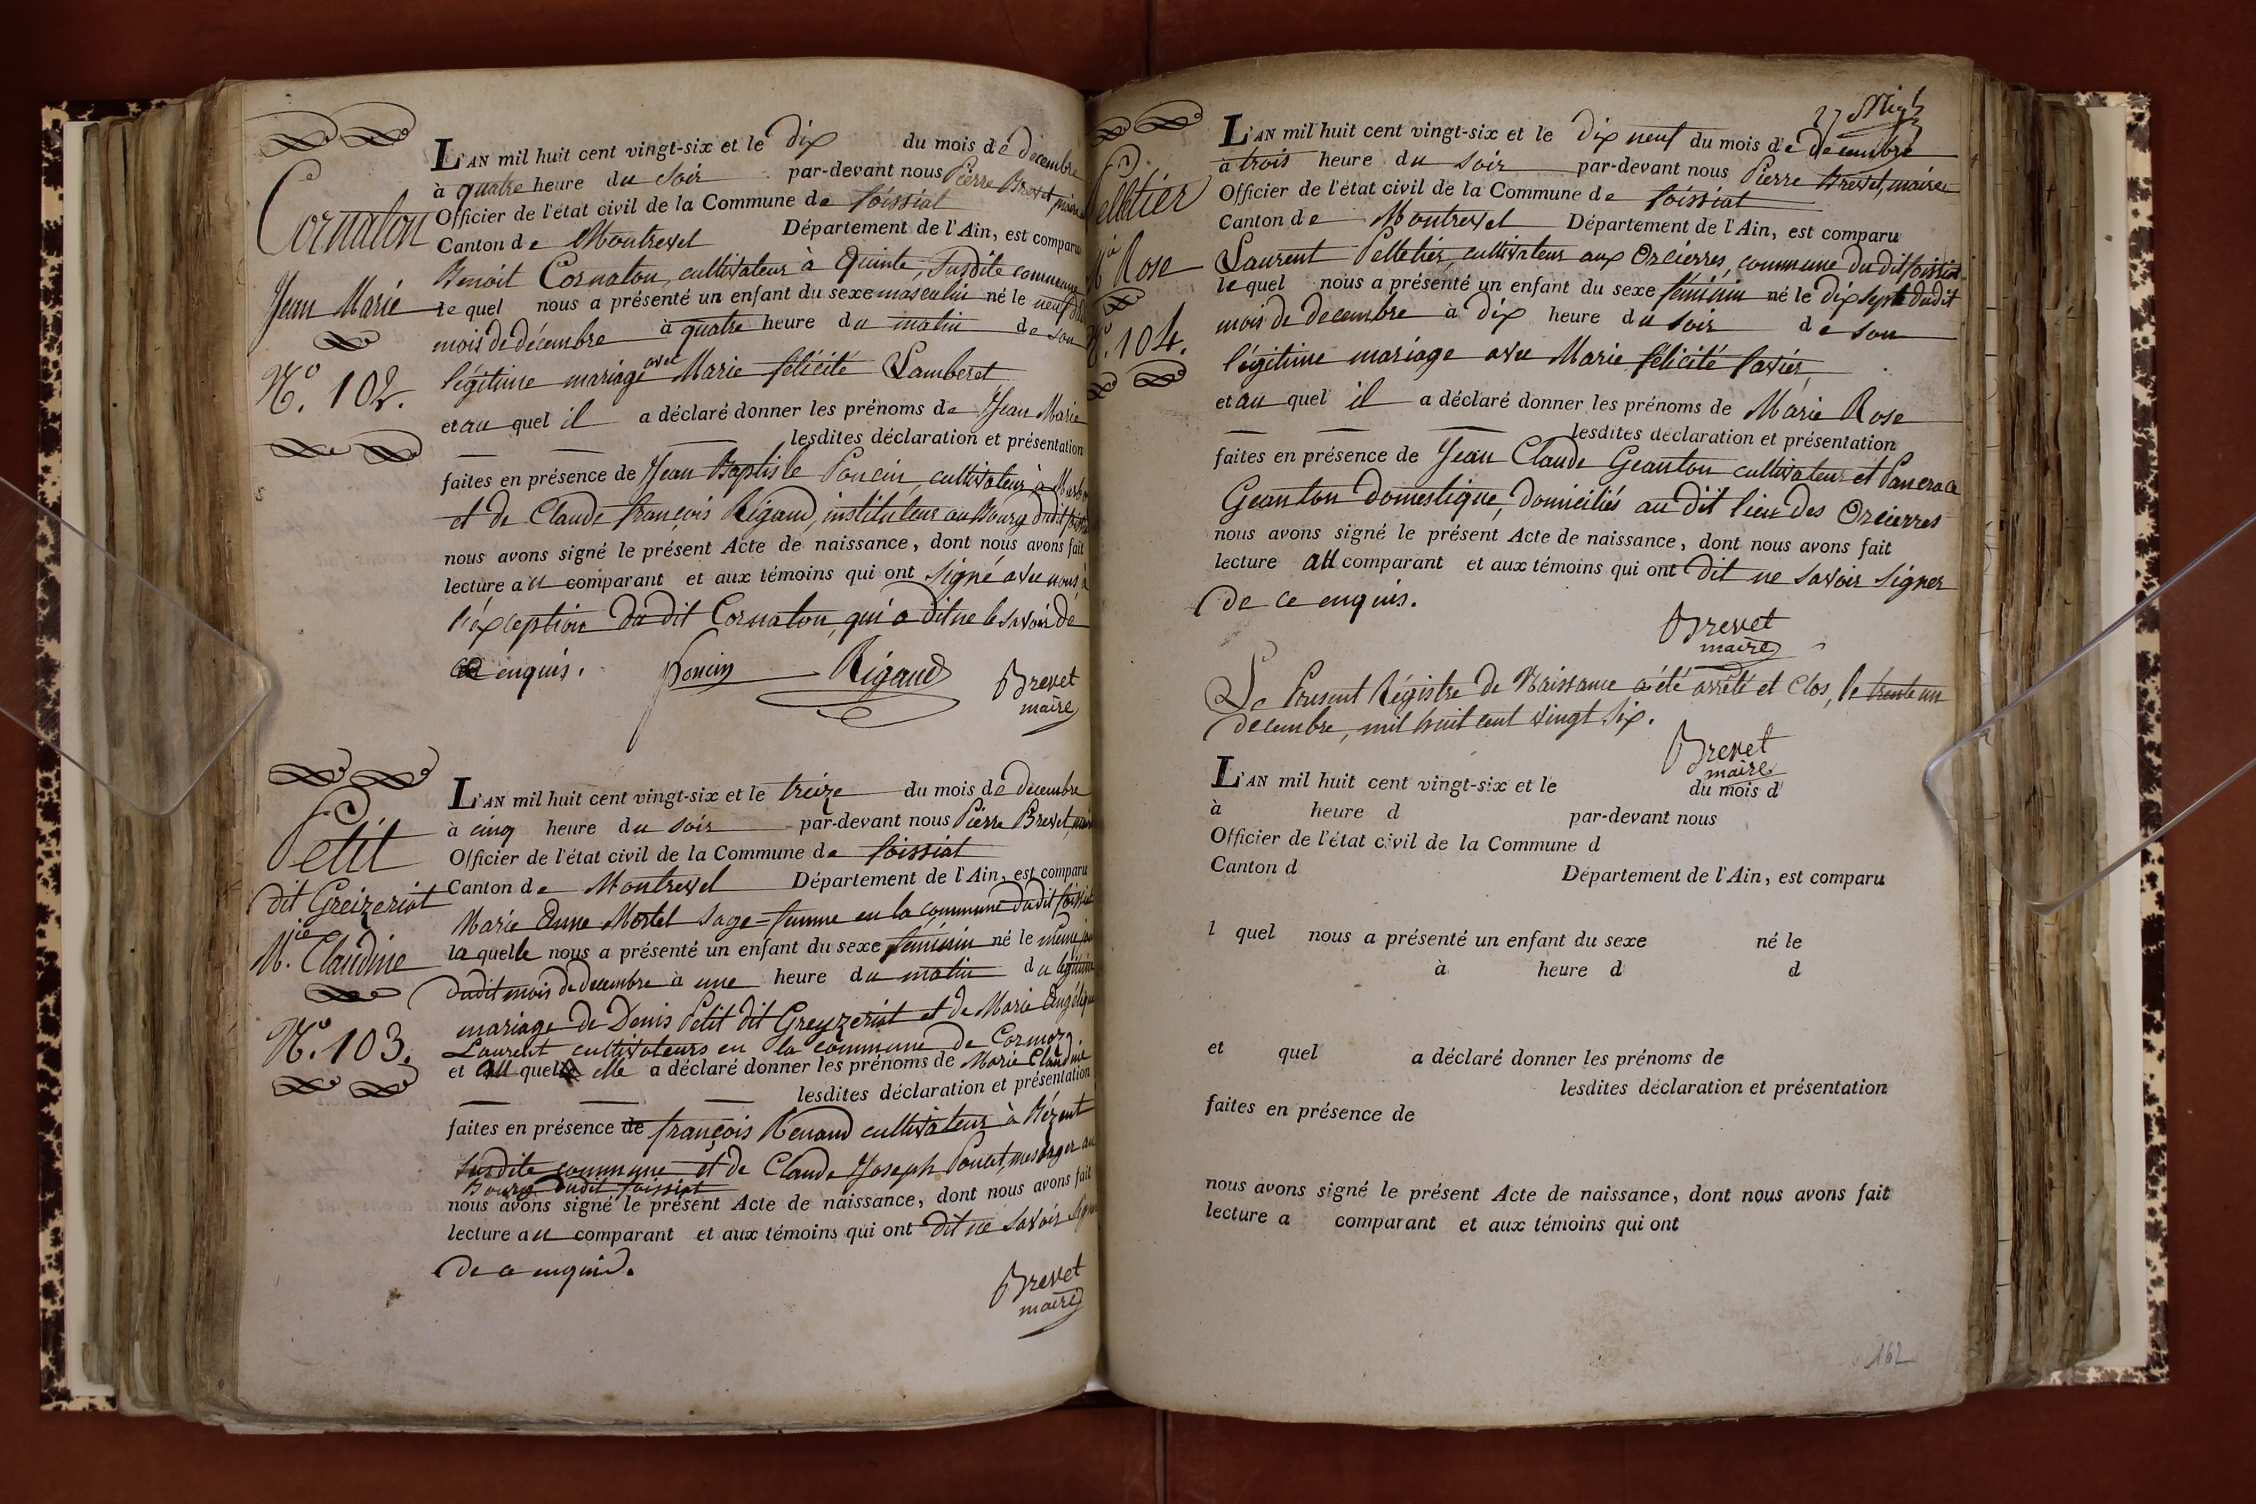 Cornaton
Jean Marie
N.º 102.
L'AN mil huit cent vingt-six et le dix du mois de décembre
à quatre heure du soir par-devant nous Pierre Brevet, maire
Officier de l'état civil de la Commune de foissiat
Canton de Montrevel Département de l'Ain, est comparu
Benoit Cornaton, cultivateur à Quinte, susdite commune
le quel nous a présenté un enfant du sexe masculin né le neuf du
mois de décembre à quatre heure du matin de son
légitime mariage avec Marie félicité Lamberet
et au quel il a déclaré donner les prénoms de Jean Marie
lesdites déclaration et présentation
faites en présence de Jean Baptiste Poncin, cultivateur à
et de Claude françois Rigaud, instituteur au Bourg dudit foissiat
nous avons signé le présent Acte de naissance, dont nous avons fait
lecture au comparant et aux témoins qui ont signé avec nous, à
l'éxception du dit Cornaton, qui a dit ne le savoir de
ce enquis.
Poncin Rigaud Brevet
maire
Petit
dit Greizeriat
M.ie Claudine
N.º 103.
L'AN mil huit cent vingt-six et le treize du mois de décembre
à cinq heure du soir par-devant nous Pierre Brevet, maire
Officier de l'état civil de la Commune de foissiat
Canton de Montrevel Département de l'Ain, est comparu
Marie Anne Mortel sage-femme en la commune dudit foissiat
la quelle nous a présenté un enfant du sexe féminin né le même jour
dudit mois de decembre à une heure du matin du légitime
mariage de Denis Petit dit Greyzeriat et de Marie Angélique
Laurent cultivateurs en la commune de Cormoz
et au quel elle a déclaré donner les prénoms de Marie Claudine
lesdites déclaration et présentation
faites en présence de françois Renaud cultivateur à Bézent
susdite commune et de Claude Joseph Ponat, messager au
Bourg dudit foissiat
nous avons signé le présent Acte de naissance, dont nous avons fait
lecture au comparant et aux témoins qui ont dit ne savoir signer
de ce enquis.
Brevet
maire
Pelletier
M.ie Rose
N.º 104.
L'AN mil huit cent vingt-six et le dix neuf du mois de décembre
à trois heure du soir par-devant nous Pierre Brevet, maire
Officier de l'état civil de la Commune de foissiat
Canton de Montrevel Département de l'Ain, est comparu
Laurent Pelletier, cultivateur aux Orcierres, commune du dit foissiat
le quel nous a présenté un enfant du sexe féminin né le dix sept dudit
mois de decembre à dix heure du soir de son
légitime mariage avec Marie félicité favier,
et au quel il a déclaré donner les prénoms de Marie Rose
lesdites déclaration et présentation
faites en présence de Jean Claude Geanton cultivateur et Pancrace
Geanton domestique, domiciliés au dit lieu des Orcierres
nous avons signé le présent Acte de naissance, dont nous avons fait
lecture au comparant et aux témoins qui ont dit ne savoir signer
de ce enquis.
Brevet
maire
Le Present Régistre de Naissance a été arrêté et clos, le trente un
decembre, mil huit cent vingt six.
Brevet
maire
L'AN mil huit cent vingt-six et le du mois d
à heure d par-devant nous
Officier de l'état civil de la Commune d
Canton d Département de l'Ain, est comparu
l quel nous a présenté un enfant du sexe né le
à heure d d
et quel a déclaré donner les prénoms de
lesdites déclaration et présentation
faites en présence de
nous avons signé le présent Acte de naissance, dont nous avons fait
lecture a comparant et aux témoins qui ont
162